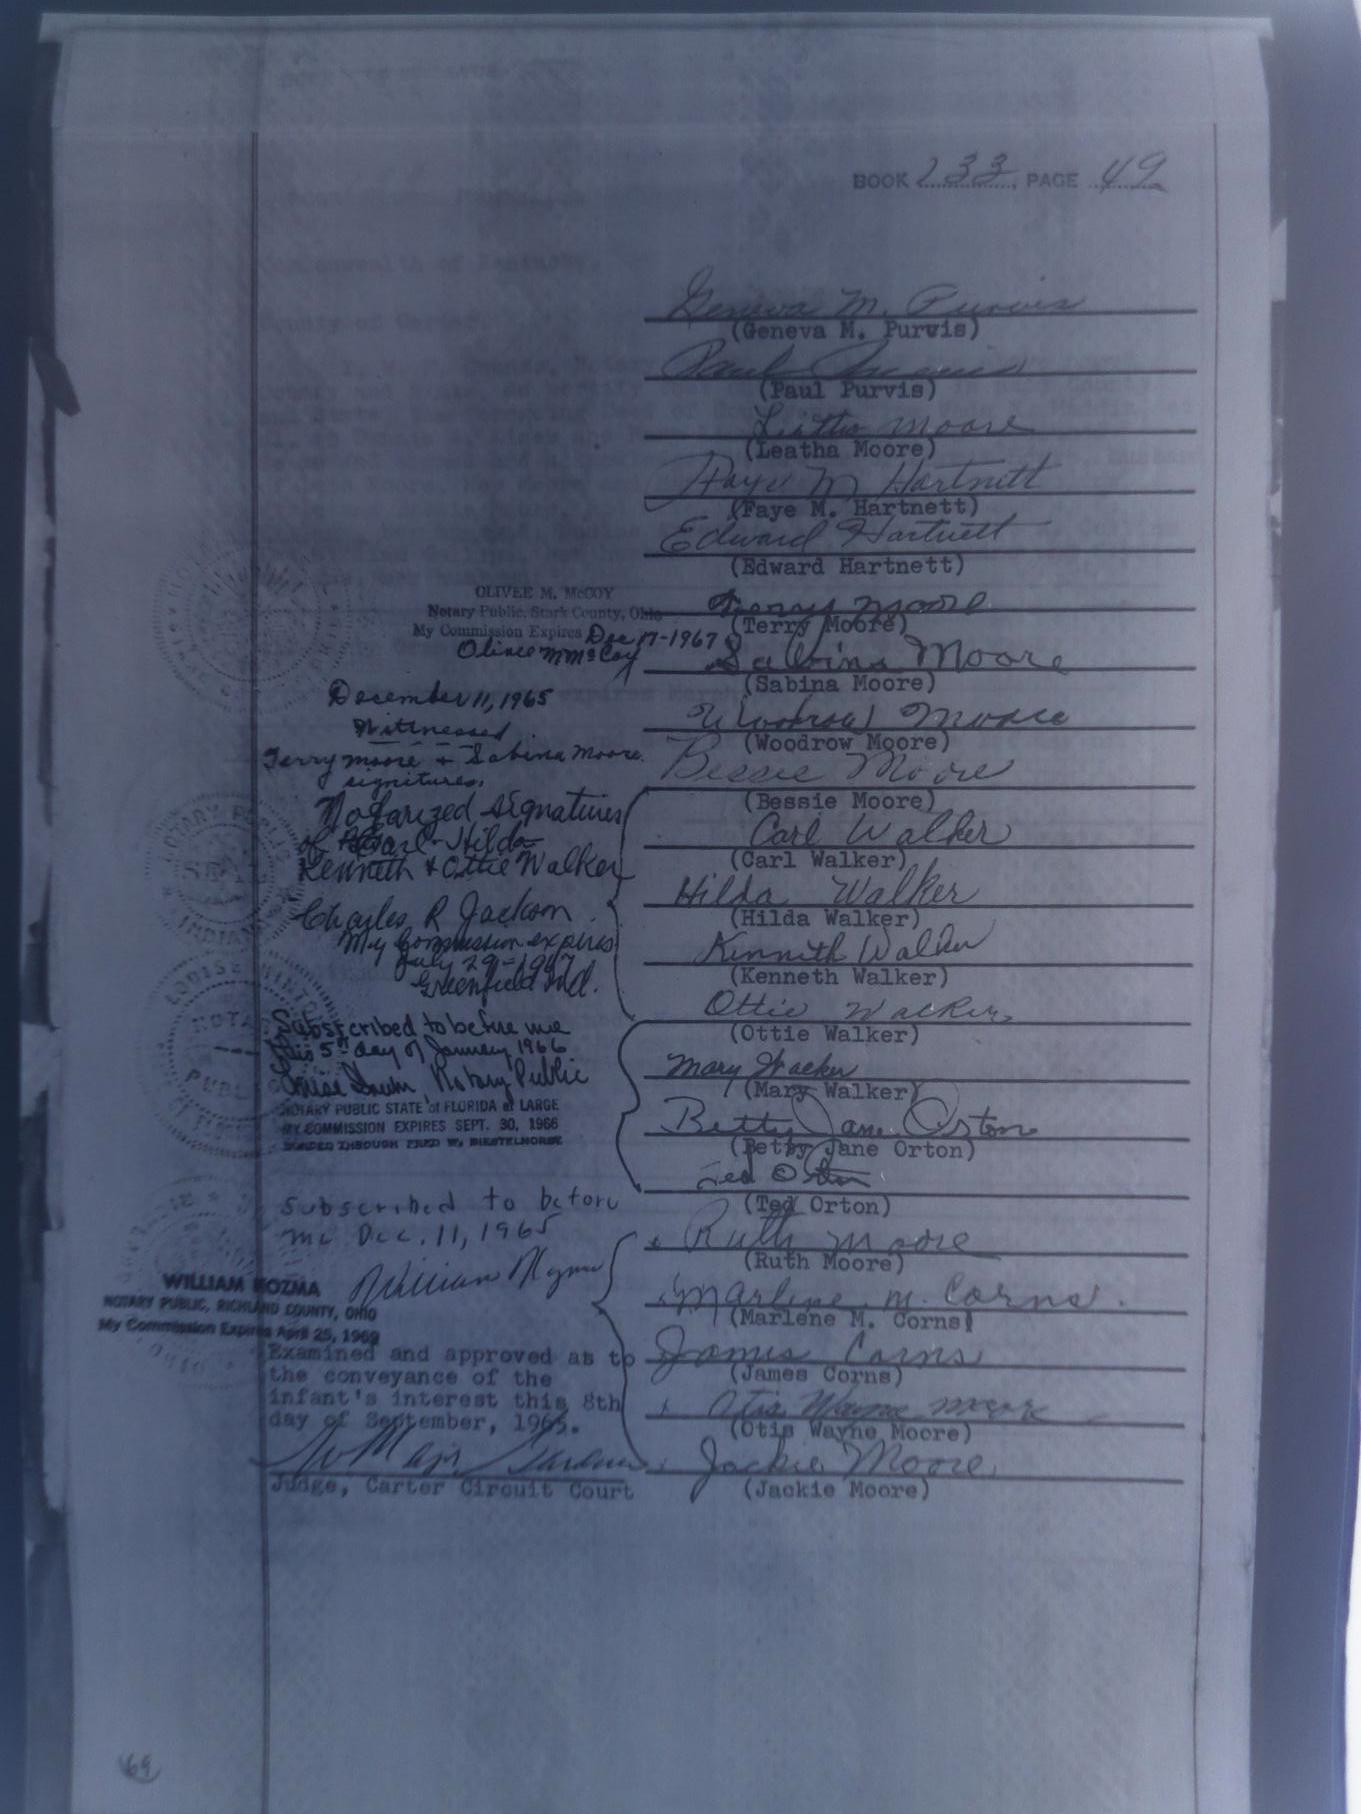 BOOK 133, PAGE 49
Geneva M. Purvis
(Geneva M. Purvis)
Paul Purvis
(Paul Purvis)
Leatha Moore
(Leatha Moore)
Faye M Hartnett
(Faye M. Hartnett)
Edward Hartnett
(Edward Hartnett)
OLIVEE M. McCOY
Notary Public, Stark County, Ohio
My Commission Expires Dec 17-1967
Olivee M McCoy
Terry Moore
(Terry Moore)
Sabina Moore
(Sabina Moore)
December 11, 1965
Wittnessed
Terry Moore + Sabina Moore
signitures.
Woodrow Moore
(Woodrow Moore)
Bessie Moore
(Bessie Moore)
Notarized signatures
of Carl - Hilda
Kenneth & Ottie Walker
Charles R Jackson
My Commission expires
July 29-1967
Greenfield Ind.
Carl Walker
(Carl Walker)
Hilda Walker
(Hilda Walker)
Kenneth Walker
(Kenneth Walker)
Ottie Walker
(Ottie Walker)
Subscribed to before me
this 5th day of January 1966
Notary Public
NOTARY PUBLIC STATE of FLORIDA at LARGE
MY COMMISSION EXPIRES SEPT. 30, 1966
BONDED THROUGH FRED W. DIESTELHORST
Mary Walker
(Mary Walker)
Betty Jane Orton
(Betty Jane Orton)
Ted Orton
(Ted Orton)
Subscribed to before
me Dec. 11, 1965
William Kozma
WILLIAM KOZMA
NOTARY PUBLIC, RICHLAND COUNTY, OHIO
My Commission Expires April 25, 1969
Ruth Moore
(Ruth Moore)
Marlene M. Corns.
(Marlene M. Corns)
James Corns
(James Corns)
Otis Wayne Moore
(Otis Wayne Moore)
Jackie Moore
(Jackie Moore)
Examined and approved as to
the conveyance of the
infant's interest this 8th
day of September, 1965.
Judge, Carter Circuit Court
69